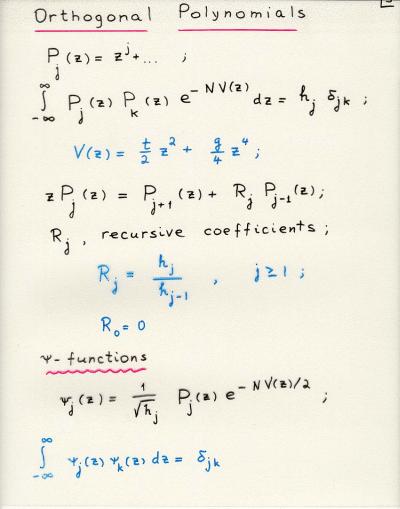 Orthogonal Polynomials
P_j(z) = z^j + ... ;
∫_{-∞}^{∞} P_j(z) P_k(z) e^{-NV(z)} dz = h_j δ_{jk} ;
V(z) = t/2 z^2 + g/4 z^4 ;
z P_j(z) = P_{j+1}(z) + R_j P_{j-1}(z) ;
R_j , recursive coefficients ;
R_j = h_j / h_{j-1} , j ≥ 1 ;
R_0 = 0
Ψ-functions
Ψ_j(z) = 1/√h_j P_j(z) e^{-NV(z)/2} ;
∫_{-∞}^{∞} Ψ_j(z) Ψ_k(z) dz = δ_{jk}